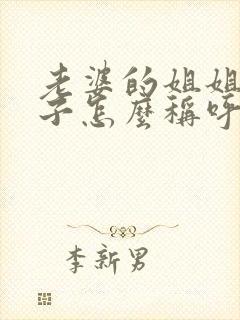 老婆的姐姐
子怎麼稱呼
李新男